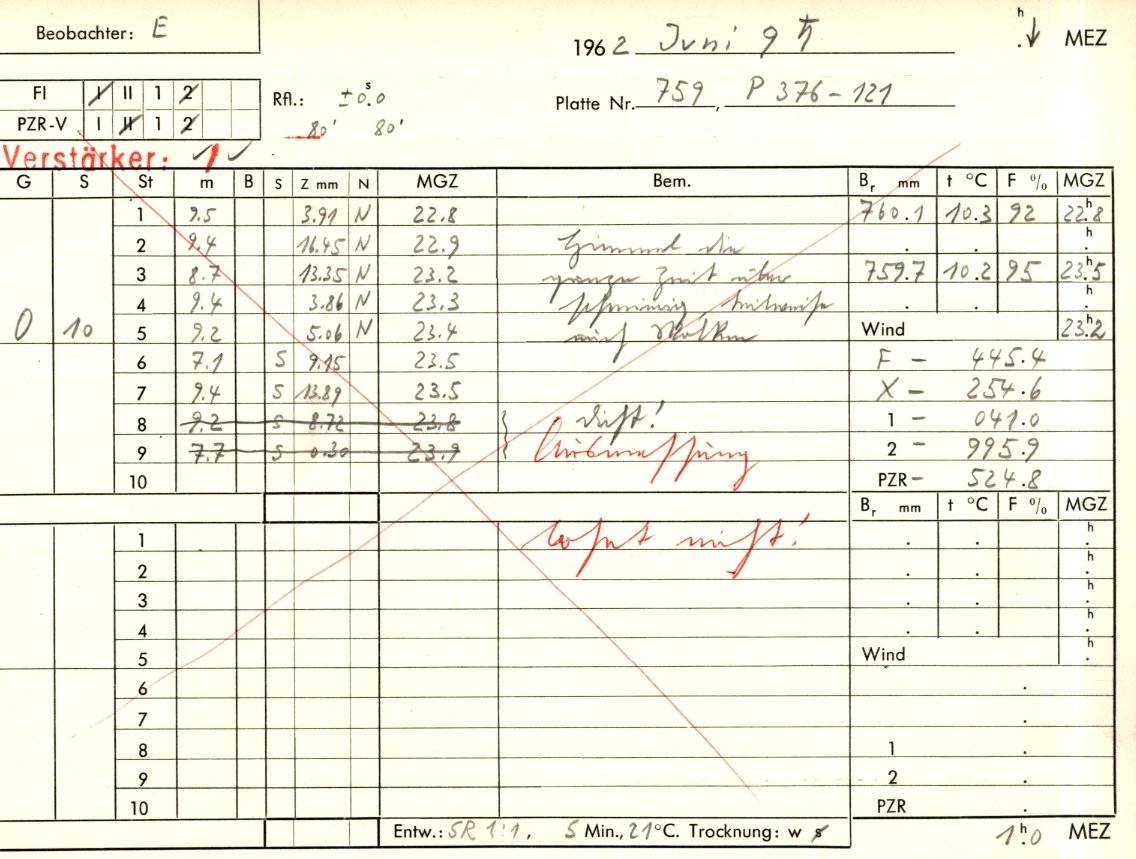 Beobachter: E
1962 Juni 9 ♄
h . ↓ MEZ
FI I II 1 2
PZR-V I II 1 2
Rfl.: ± 0ˢ.0
80' 80'
Platte Nr. 759, P 376-121
Verstärker: 1 ✓
G S St m B S Z mm N MGZ Bem. Br mm t °C F % MGZ
0 10
1 9.5 3.91 N 22.8 760.1 10.3 92 22.8 h
2 9.4 16.45 N 22.9 Himmel die . . h .
3 8.7 13.35 N 23.2 ganze Zeit über 759.7 10.2 95 23.5 h
4 9.4 3.86 N 23.3 teilweise . . h .
5 9.2 5.06 N 23.4 Wolken Wind 23.2 h
6 7.1 S 9.15 23.5 F - 445.4
7 9.4 S 13.89 23.5 X - 254.6
8 9.2 S 8.72 23.8 dicht! 1 - 041.0
9 7.7 S 0.30 23.9 Ausmessung 2 - 995.9
10 PZR - 524.8
Br mm t °C F % MGZ
1 lohnt nicht! . . h .
2 . . h .
3 . . h .
4 . . h .
5 Wind h .
6 .
7 .
8 1 .
9 2 .
10 PZR .
Entw.: SR 1:1, 5 Min., 21°C. Trocknung: w s
1 h.0 MEZ